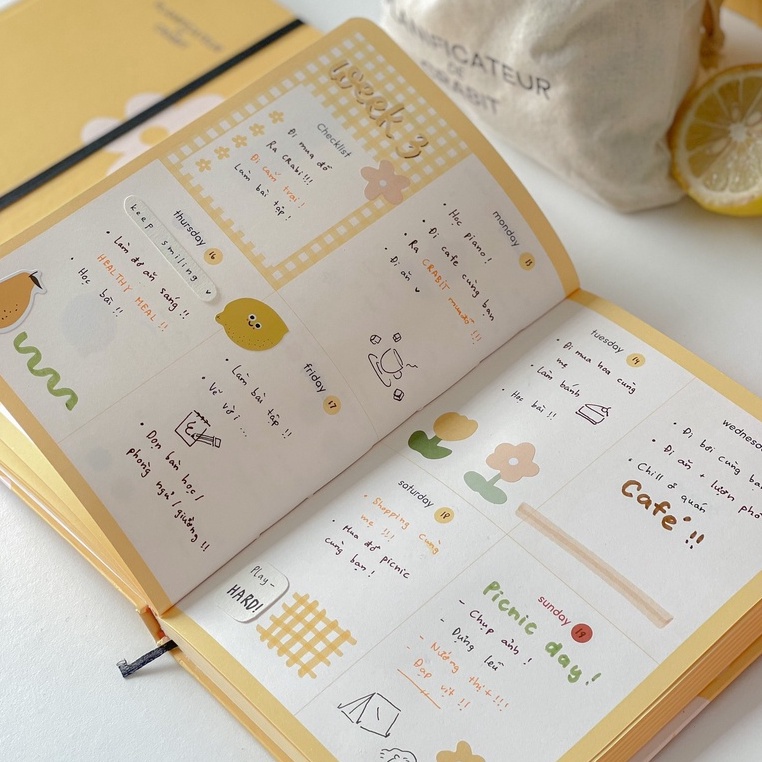 PLANIFICATEUR
DE
CRABIT
Week 3
Checklist
Đi mua đồ
Ra CRAbi!!!
Đi cắm trại!
Làm bài tập!
monday 13
• Học piano!
• Đi cafe cùng bạn
• Ra CRABIT muađồ !!!
• Đi ăn
tuesday 14
• Đi mua hoa cùng
mẹ
• Làm bánh
• Học bài!!
• Đi bơi cùng
• Đi ăn + lượn
• Chill ở quán
Café!!
thursday 16
keep smiling
• Làm đồ ăn sáng!!
HEALTHY MEAL!!
• Học bài!!
friday 17
• Làm bài tập!!
• Vẽ vời...
• Dọn bàn học/
phòng ngủ/giường!!
saturday 18
• Shopping cùng
mẹ !!!
• Mua đồ picnic
cùng bạn!
PLAy-
HARD!
sunday 19
Picnic day!
- Chụp ảnh!
- Dựng lều
- Nướng thịt!!!
- Đạp vịt!!